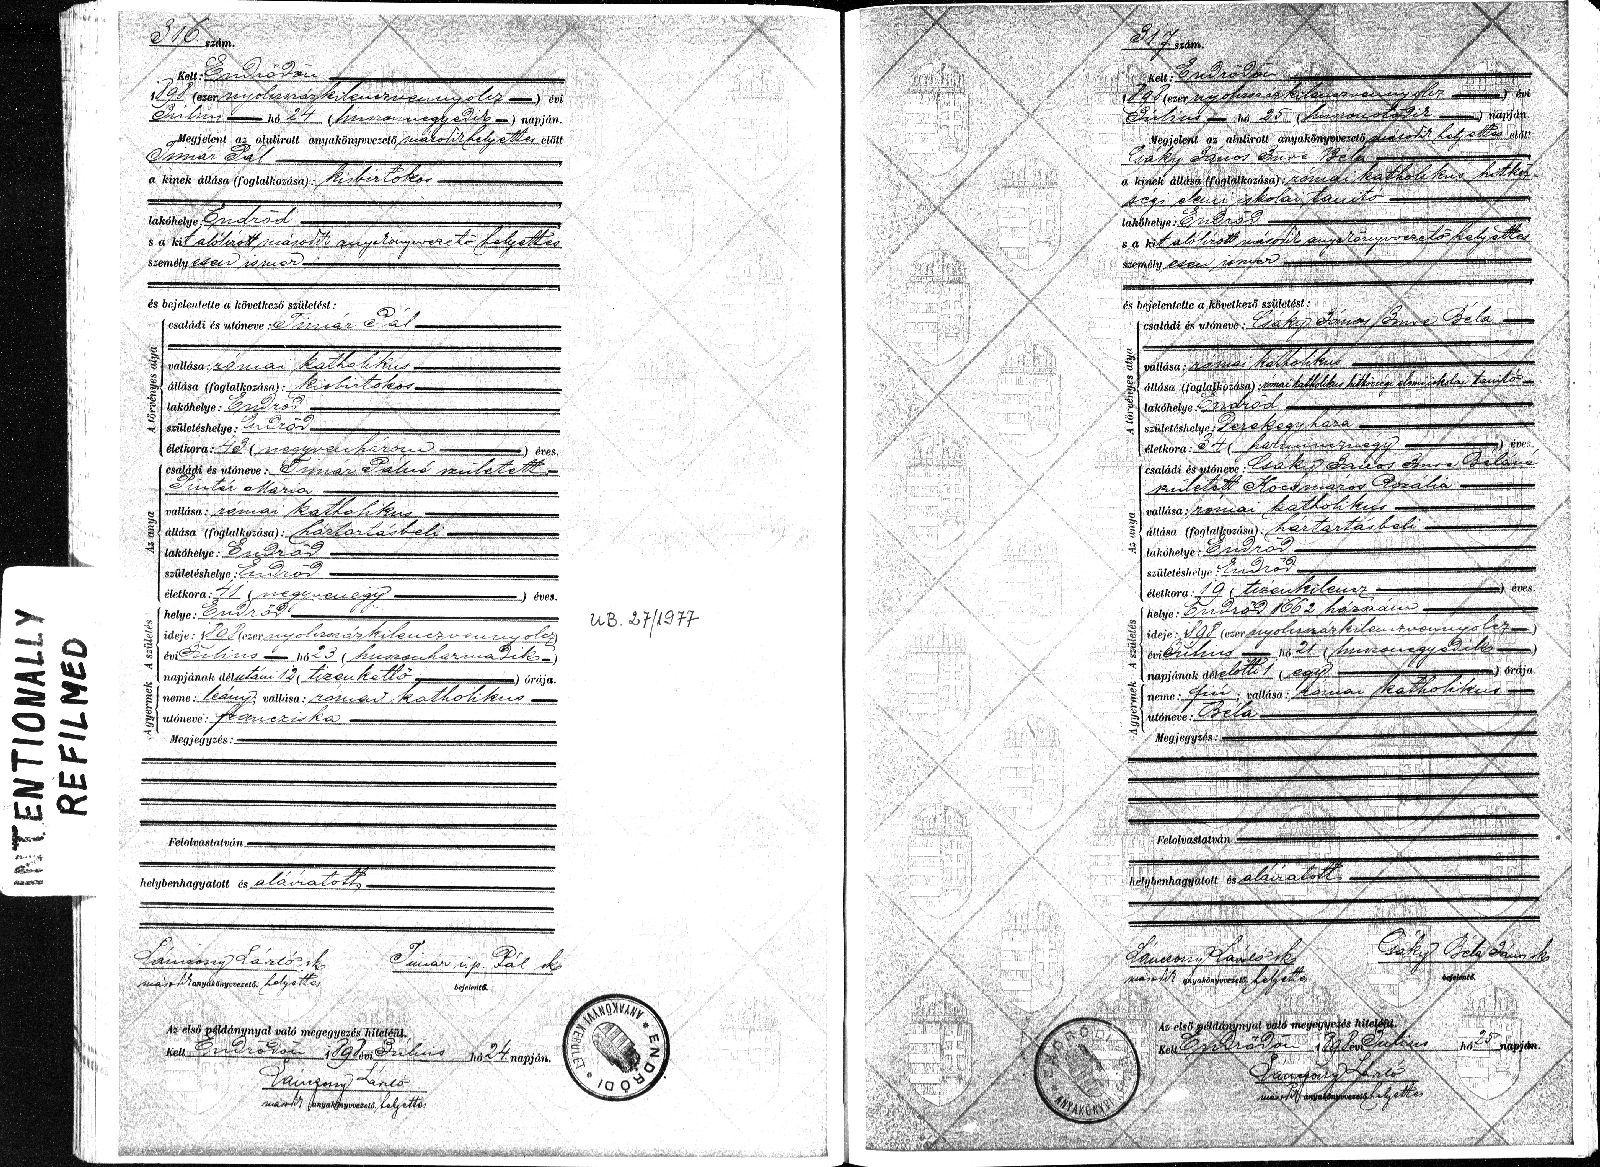 INTENTIONALLY
REFILMED
316 szám.
Kelt: Endrődön
1898 (ezer nyolcszázkilenczvennyolcz) évi
Július hó 24 (huszonnegyedik) napján.
Megjelent az alulirott anyakönyvvezető második helyettes előtt
Timár Pál
a kinek állása (foglalkozása): kisbirtokos
lakóhelye Endrőd
s a kit alólirott második anyakönyvvezető helyettes
személyesen ismer
és bejelentette a következő születést:
A törvényes atya
családi és utóneve: Timár Pál
vallása: római katholikus
állása (foglalkozása): kisbirtokos
lakóhelye: Endrőd
születéshelye: Endrőd
életkora: 43 (negyvenhárom) éves.
Az anya
családi és utóneve: Timár Pálné született
Pintér Mária
vallása: római katholikus
állása (foglalkozása): háztartásbeli
lakóhelye: Endrőd
születéshelye: Endrőd
életkora: 41 (negyvenegy) éves.
A születés
helye: Endrőd
ideje: 1898 (ezer nyolcszázkilenczvennyolcz)
évi Július hó 23 (huszonharmadik)
napjának délutáni 12 (tizenkettő) órája.
A gyermek
neme: leány; vallása: római katholikus
utóneve: Francziska
Megjegyzés:
Felolvastatván
helybenhagyatott és aláiratott
Lánczony László sk
második anyakönyvvezető. helyettes
Timár u.p. Pál sk
bejelentő.
Az első példánynyal való megegyezés hiteléül.
Kelt Endrődön 1898 évi Július hó 24 napján.
Lánczony László
második anyakönyvvezető. helyettes
ENDRŐDI * ANYAKÖNYVI KERÜLET *
UB. 27/1977
317 szám.
Kelt: Endrődön
1898 (ezer nyolcszázkilenczvennyolcz) évi
Július hó 25 (huszonötödik) napján.
Megjelent az alulirott anyakönyvvezető második helyettes előtt
Csáky János Imre Béla
a kinek állása (foglalkozása): római katholikus hitköz-
ségi elemi iskolai tanító
lakóhelye: Endrőd
s a kit alólirott második anyakönyvvezető helyettes
személyesen ismer
és bejelentette a következő születést:
A törvényes atya
családi és utóneve: Csáky János Imre Béla
vallása: római katholikus
állása (foglalkozása): római katholikus hitközségi elemi iskolai tanító
lakóhelye: Endrőd
születéshelye: Derekegyháza
életkora: 34 (harmincznégy) éves.
Az anya
családi és utóneve: Csáky János Imre Béláné
született Kocsmáros Rozália
vallása: római katholikus
állása (foglalkozása): háztartásbeli
lakóhelye: Endrőd
születéshelye: Endrőd
életkora: 19 (tizenkilencz) éves.
A születés
helye: Endrőd 1662 házszám
ideje: 1898 (ezer nyolcszázkilenczvennyolcz)
évi Július hó 21 (huszonegyedik)
napjának délelőtti 1 (egy) órája.
A gyermek
neme: fiú; vallása: római katholikus
utóneve: Béla
Megjegyzés:
Felolvastatván
helybenhagyatott és aláiratott
Lánczony László sk
második anyakönyvvezető. helyettes
Csáky Béla János sk
bejelentő.
Az első példánynyal való megegyezés hiteléül.
Kelt Endrődön 1898 évi Július hó 25 napján.
Lánczony László
második anyakönyvvezető helyettes